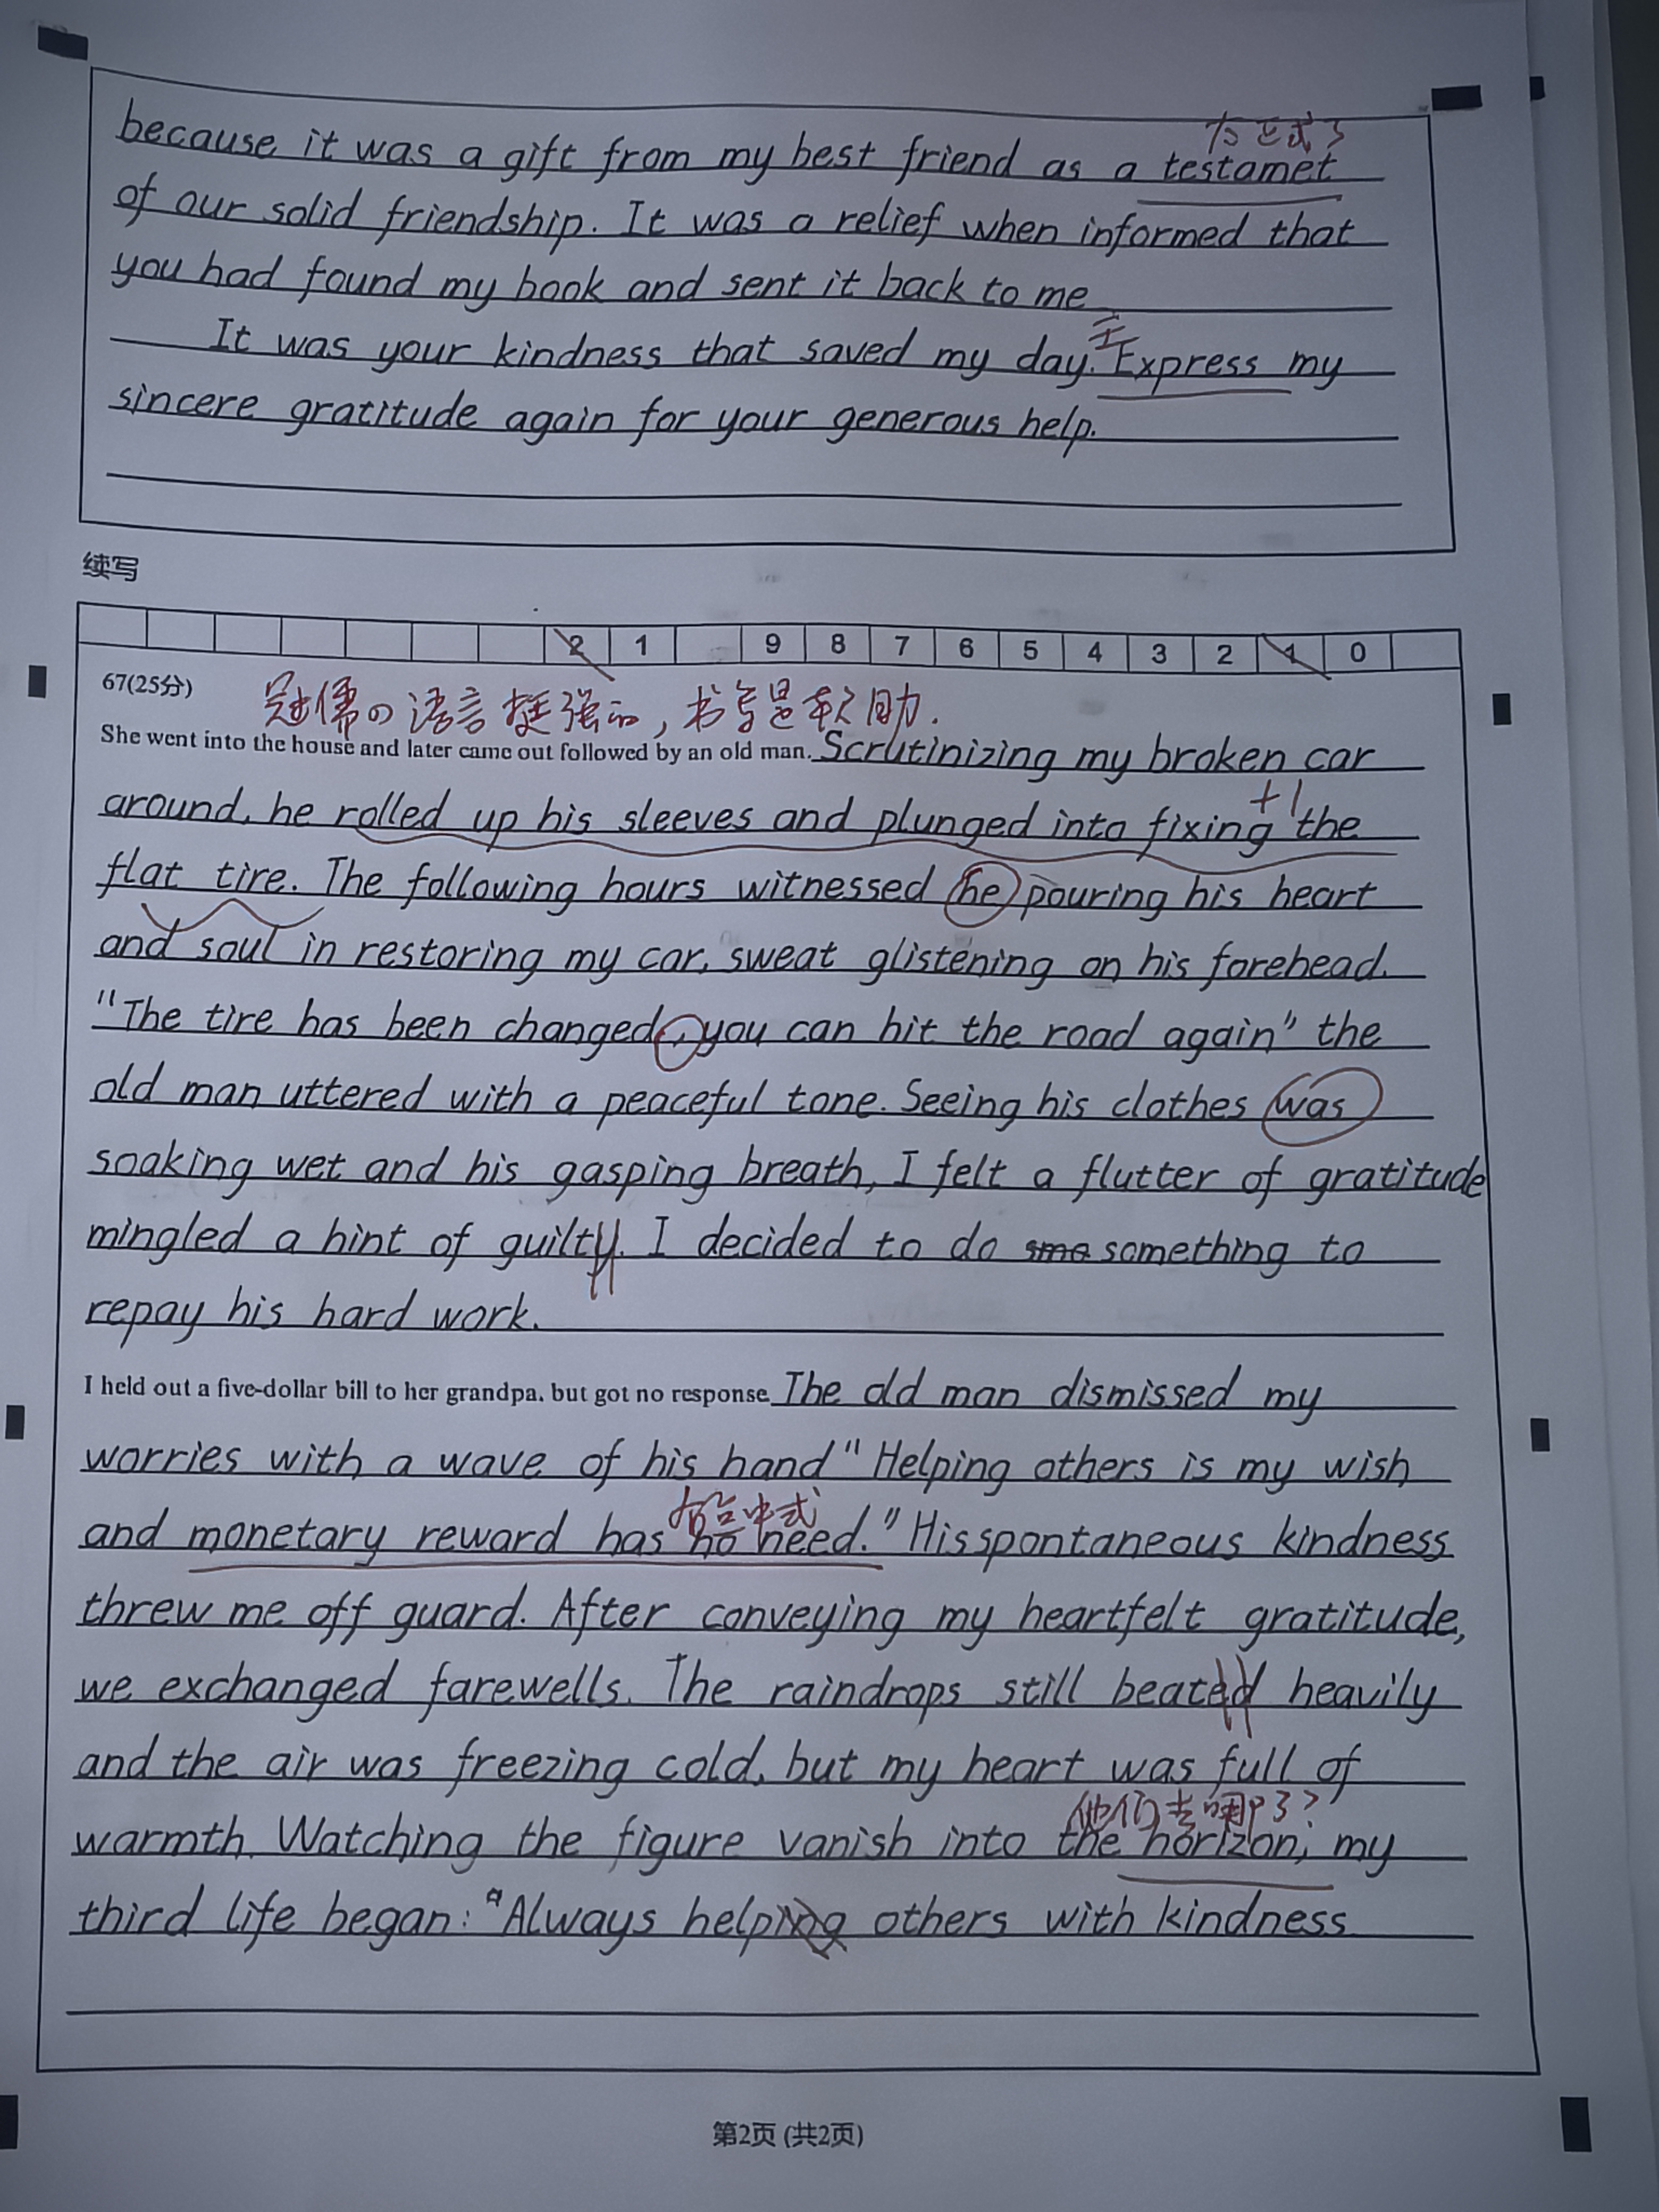 太正式了
because it was a gift from my best friend as a testamet
of our solid friendship. It was a relief when informed that
you had found my book and sent it back to me
It was your kindness that saved my day. Express my
sincere gratitude again for your generous help.
续写
2 1 9 8 7 6 5 4 3 2 1 0
67(25分)
冠儒の语言挺强的，书写是软肋.
She went into the house and later came out followed by an old man. Scrutinizing my broken car
+1
around, he rolled up his sleeves and plunged into fixing the
flat tire. The following hours witnessed he pouring his heart
and soul in restoring my car, sweat glistening on his forehead.
"The tire has been changed, you can hit the road again" the
old man uttered with a peaceful tone. Seeing his clothes was
soaking wet and his gasping breath, I felt a flutter of gratitude
mingled a hint of guilty. I decided to do smo something to
repay his hard work.
I held out a five-dollar bill to her grandpa. but got no response The old man dismissed my
worries with a wave of his hand" Helping others is my wish
中式
and monetary reward has no need." His spontaneous kindness
threw me off guard. After conveying my heartfelt gratitude,
we exchanged farewells. The raindrops still beated heavily
and the air was freezing cold, but my heart was full of
他们去哪了?
warmth. Watching the figure vanish into the horizon, my
third life began: "Always helping others with kindness
第2页 (共2页)